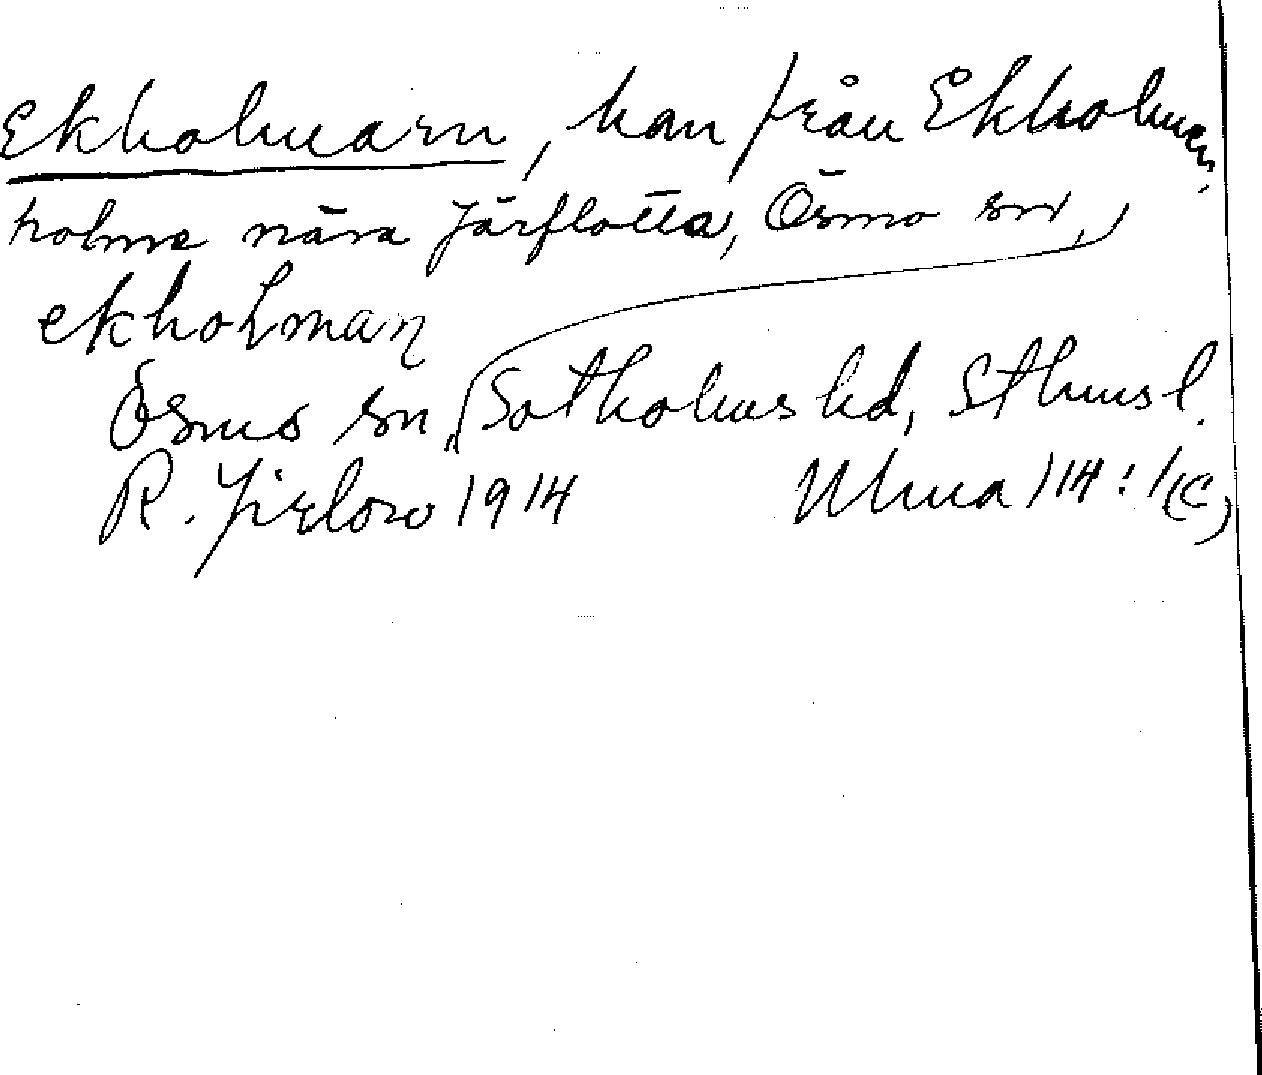 Ekholmarn, han från Ekholmen,
holme nära Järflotta, Ösmo sn,
ekholmaɳ
Ösmo sn, Sotholms hd, Sthms l.
R. Jirlow 1914 Ulma 114:1(c)